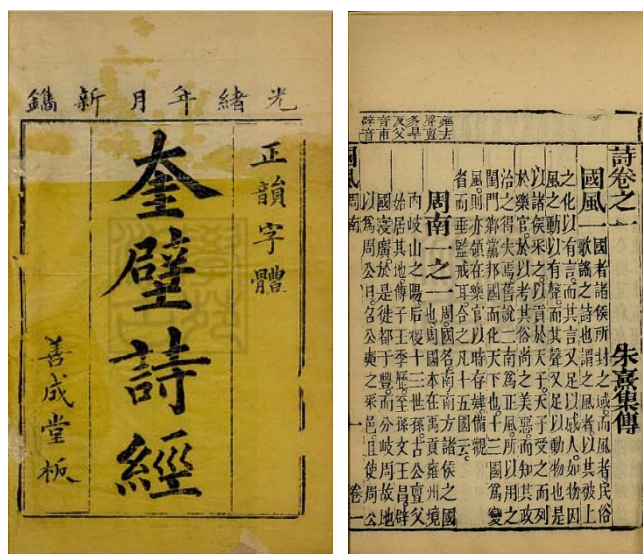 光緒年月新鐫
正韻字體
奎壁詩經
善成堂板
雍去
聲亶
多旱
反父
音甫
辟音
詩卷之一 朱熹集傳
國風一 國者諸侯所封之域而風者民俗
歌謠之詩也謂之風者以其被上
之化以有言而其言又足以感人如物因
風之動以有聲而其聲又足以動物也是
以諸侯采之以貢於天子天子受之而列
於樂官於以考其俗尚之美惡而知其政
治之得失焉舊說二南爲正風所以用之
閨門鄉黨邦國而化天下也十三國爲變
風則亦領在樂官以時存肄備觀
省而垂監戒耳合之凡十五國云
周南一之一 周國名南南方諸侯之國
也周國本在禹貢雍州境
內岐山之陽后稷十三世孫古公亶父
始居其地傳子王季歷至孫文王昌辟
國寖廣於是徙都于豐而分岐周故地
以爲周公旦召公奭之采邑且使周公
國風 周南 一 卷一